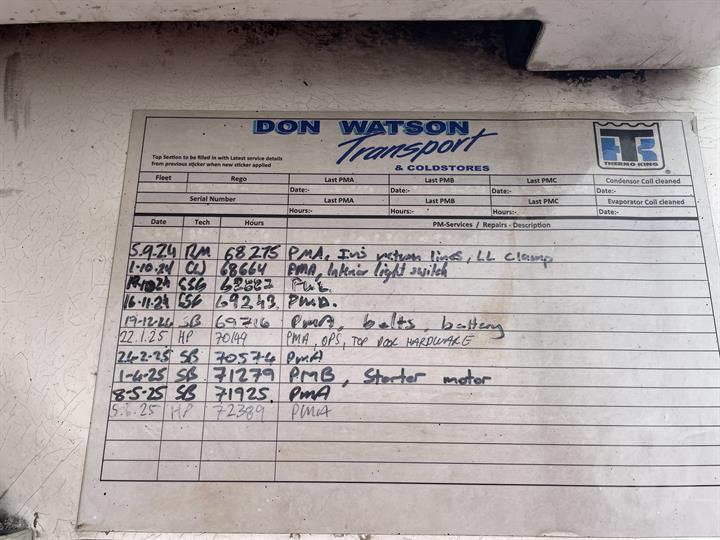 DON WATSON
Transport
& COLDSTORES
THERMO KING
Top Section to be filled in with Latest service details
from previous sticker when new sticker applied
Fleet Rego Last PMA Last PMB Last PMC Condensor Coil cleaned
Date:- Date:- Date:- Date:-
Serial Number Last PMA Last PMB Last PMC Evaporator Coil cleaned
Hours:- Hours:- Hours:- Date:-
Date Tech Hours PM-Services / Repairs - Description
5.9.24 RM 68275 PMA, Ins return lines, LL clamp
1-10-24 CW 68664 PMA, Interior light switch
16-11-24 69243 PMA.
19-12-24 SB 69716 PMA, belts, battery
22.1.25 HP 70149 PMA, OPS, TOP DOOR HARDWARE
24-2-25 SB 70574 PMA
1-4-25 SB 71279 PMB, Starter motor
8-5-25 SB 71925 PMA
5.6.25 HP 72389 PMA